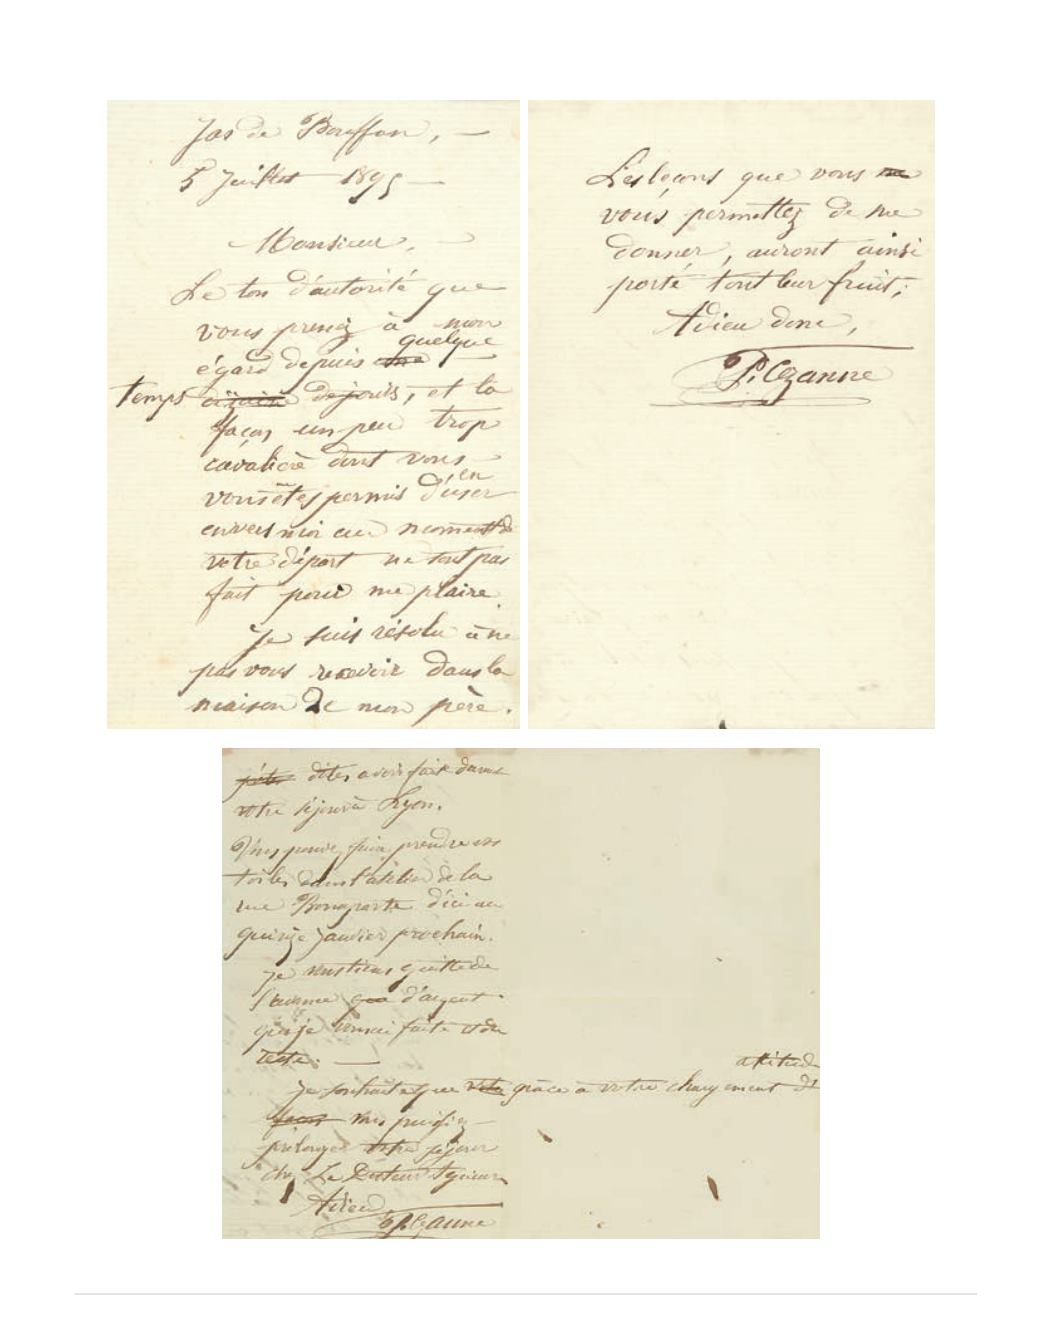 Jas de Bouffan, —
5 Juillet 1895 —
Monsieur, —
Le ton d'autorité que
vous prenez à mon
quelque
égard depuis une
temps depuis, et la
façon un peu trop
cavalière dont vous
en
vous êtes permis d'user
envers moi au moment de
votre départ ne sont pas
fait pour me plaire.
Je suis résolu à ne
pas vous recevoir dans la
maison de mon père.
Les leçons que vous me
vous permettez de me
donner, auront ainsi
porté tout leur fruit;
Adieu donc,
P. Cezanne
dites avoir fait durant
votre séjour à Lyon.
Vous pouvez faire prendre vos
toiles dans l'atelier de la
rue Bonaparte d'ici au
quinze Janvier prochain.
Je vous tiens quitte de
l'avance que d'argent
que je vous ai faite et du
reste. —
attitude
Je souhaite que votre grâce à votre changement de
façons vous puissiez
prolonger votre séjour
chez Le Docteur
Adieu
P. Cezanne